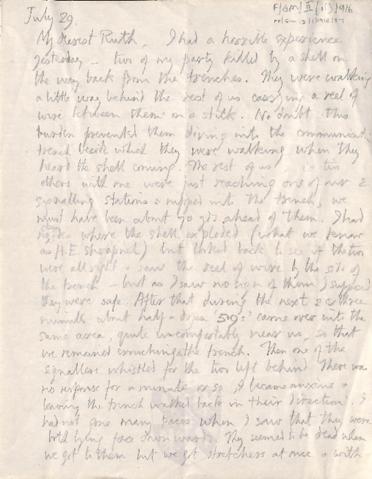 July 29.
F/GM/II
1916
My dearest Ruth, I had a horrible experience
yesterday – two of my party killed by a shell on
the way back from the trenches. They were walking
a little way behind the rest of us carrying a reel of
wire between them on a stick. No doubt this
burden prevented them diving into the communicat.
trench beside which they were walking when they
heard the shell coming. The rest of us two
others with me were just reaching one of our
signalling stations & nipped into the trench, we
must have been about 50 yds ahead of them. I had
where the shell exploded (what we term
as H.E. shrapnel) but looked back to see if the two
were all right – saw the reel of wire by the side of
the trench – but as I saw no sign of them I supposed
they were safe. After that during the next 2 or three
minutes about half-a-dozen 5.9s came over into the
same area, quite uncomfortably near us, so that
we remained crouching in the trench. Then one of the
signallers whistled for the two left behind. There was
no response for a minute or so, I became anxious &
leaving the trench walked back in their direction, I
had not gone many paces when I saw that they were
both lying face downwards. They seemed to be dead when
we got to them but we got stretchers at once & with